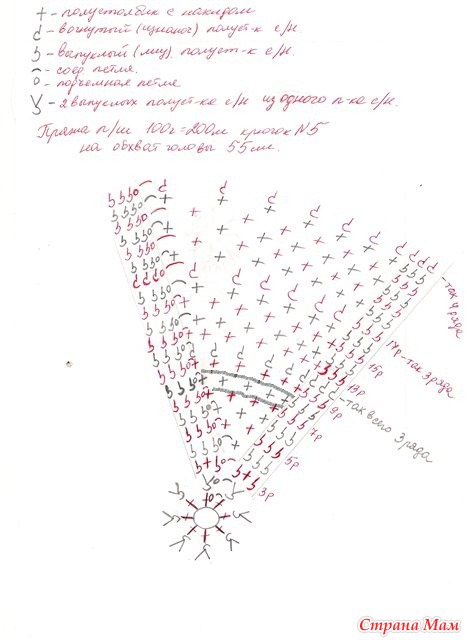 + - полустолбик с накидом
- вогнутый (изнаноч) полуст-к с/н.
- выпуклый (лиц). полуст-к с/н.
- соед. петля.
o - подъемная петля
- 2 выпуклых полуст-ка с/н из одного п-ка с/н.
Пряжа п/ш 100г=200м крючок N5
на обхват головы 55см.
- так 4 ряда
17р - так 3 ряда
15р
13р
- так всего 3 ряда
9р
7р
5р
3р
Страна Мам